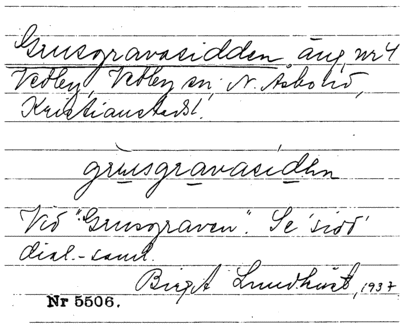 Grusgravasidden, äng nr 4
Vedby, Vedby sn, N. Åsbo hd,
Kristianstads l.
grusgravasidən
Vid "Grusgraven". Se 'sidd'
dial.-saml.
Birgit Lundqvist, 1937
Nr 5506.